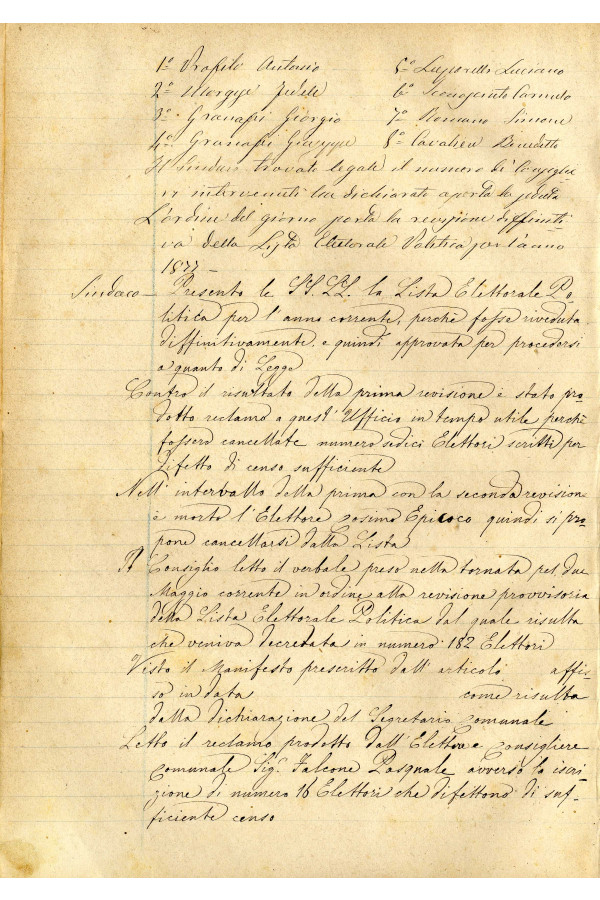 1º Profilo Antonio
2º Morgese Fedele
3º Granafei Giorgio
4º Granafei Giuseppe
5º Luciano
6º Scongerito Carmelo
7º Romano Simone
8º Cavaliere Benedetto
Il Sindaco trovato legale il numero dei Consiglie
ri intervenuti ha dichiarato aperta la seduta
L'ordine del giorno porta la revisione diffiniti
va della Lista Elettorale Politica per l'anno
1877 —
Sindaco — Presento le SS.LL. la Lista Elettorale Po-
litica per l'anno corrente, perchè fosse riveduta
diffinitivamente, e quindi approvata per procedersi
a quanto di Legge
Contro il risultato della prima revisione è stato pro-
dotto reclamo a quest'Ufficio in tempo utile perchè
fossero cancellate numero sedici Elettori scritti per
difetto di censo sufficiente
Nell'intervallo della prima con la seconda revisione
è morto l'Elettore Cosimo Epicoco quindi si pro-
pone cancellarsi dalla Lista
Il Consiglio letto il verbale preso nella tornata del due
Maggio corrente in ordine alla revisione provvisoria
della Lista Elettorale Politica dal quale risulta
che veniva decretata in numero 182 Elettori
Visto il Manifesto prescritto dall'articolo affis-
so in data come risulta
dalla dichiarazione del Segretario Comunale
Letto il reclamo prodotto dall'Elettore e Consigliere
Comunale Sig. Falcone Pasquale avverso la iscri
zione di numero 16 Elettori che difettono di suf-
ficiente censo